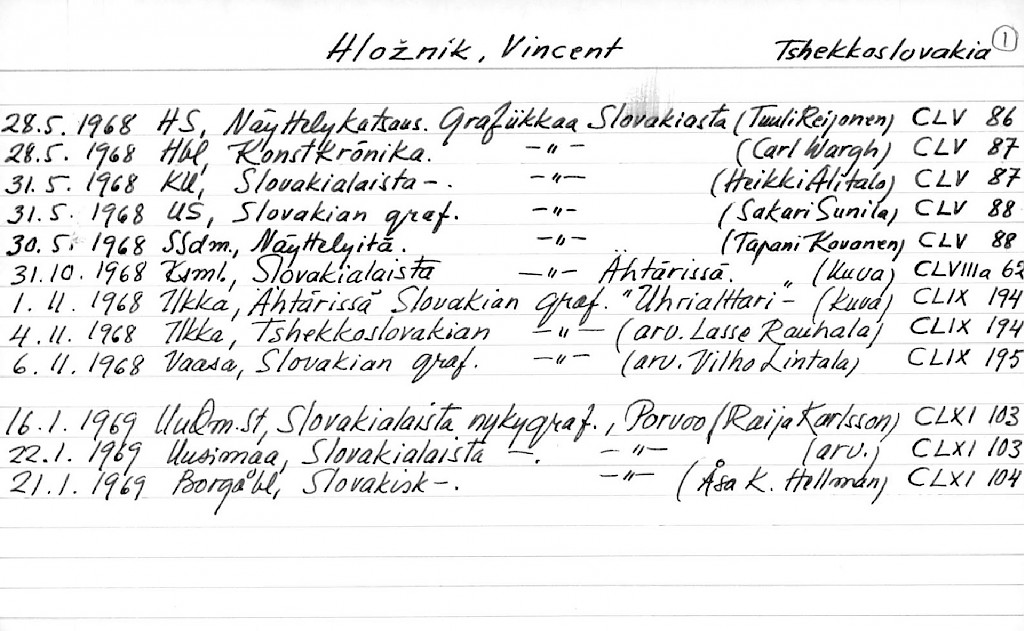 Hložnik, Vincent Tshekkoslovakia 1
28.5. 1968 HS, Näyttelykatsaus. Grafiikkaa Slovakiasta (Tuuli Reijonen) CLV 86
28.5. 1968 Hbl, Konstkrönika. -"- (Carl Wargh) CLV 87
31.5. 1968 KU, Slovakialaista -. -"- (Heikki Alitalo) CLV 87
31.5. 1968 US, Slovakian graf. -"- (Sakari Sunila) CLV 88
30.5. 1968 SSdm., Näyttelyitä. -"- (Tapani Kovanen) CLV 88
31.10. 1968 Ksml., Slovakialaista -"- Ähtärissä. " (kuva) CLVIIIa 62
1.11. 1968 Ilkka, Ähtärissä Slovakian graf. "Uhrialttari - (kuva) CLIX 194
4.11. 1968 Ilkka, Tshekkoslovakian -"- (arv. Lasse Rauhala) CLIX 194
6.11. 1968 Vaasa, Slovakian graf. -"- (arv. Vilho Lintala) CLIX 195
16.1. 1969 UuDm.St, Slovakialaista nykygraf., Porvoo (Raija Karlsson) CLXI 103
22.1. 1969 Uusimaa, Slovakialaista -. -"- (arv.) CLXI 103
21.1. 1969 Borgåbl, Slovakisk -. -"- (Åsa K. Hellman) CLXI 104